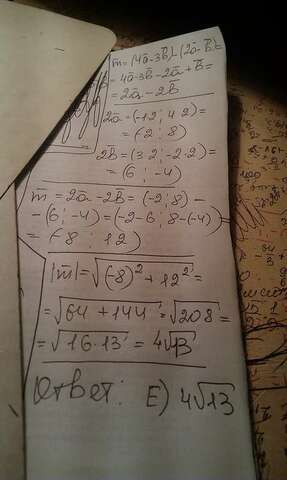 m̄=(4ā-3b̄)-(2ā-b̄)=
=4ā-3b̄-2ā+b̄=
=2ā-2b̄
2ā=(-1·2; 4·2)=
=(-2; 8)
2b̄=(3·2; -2·2)=
=(6; -4)
m̄=2ā-2b̄=(-2; 8)-
-(6; -4)=(-2-6; 8-(-4))=
=(-8; 12)
|m̄|=√(-8)²+12²=
=√64+144=√208=
=√16·13=4√13
Ответ: E) 4√13